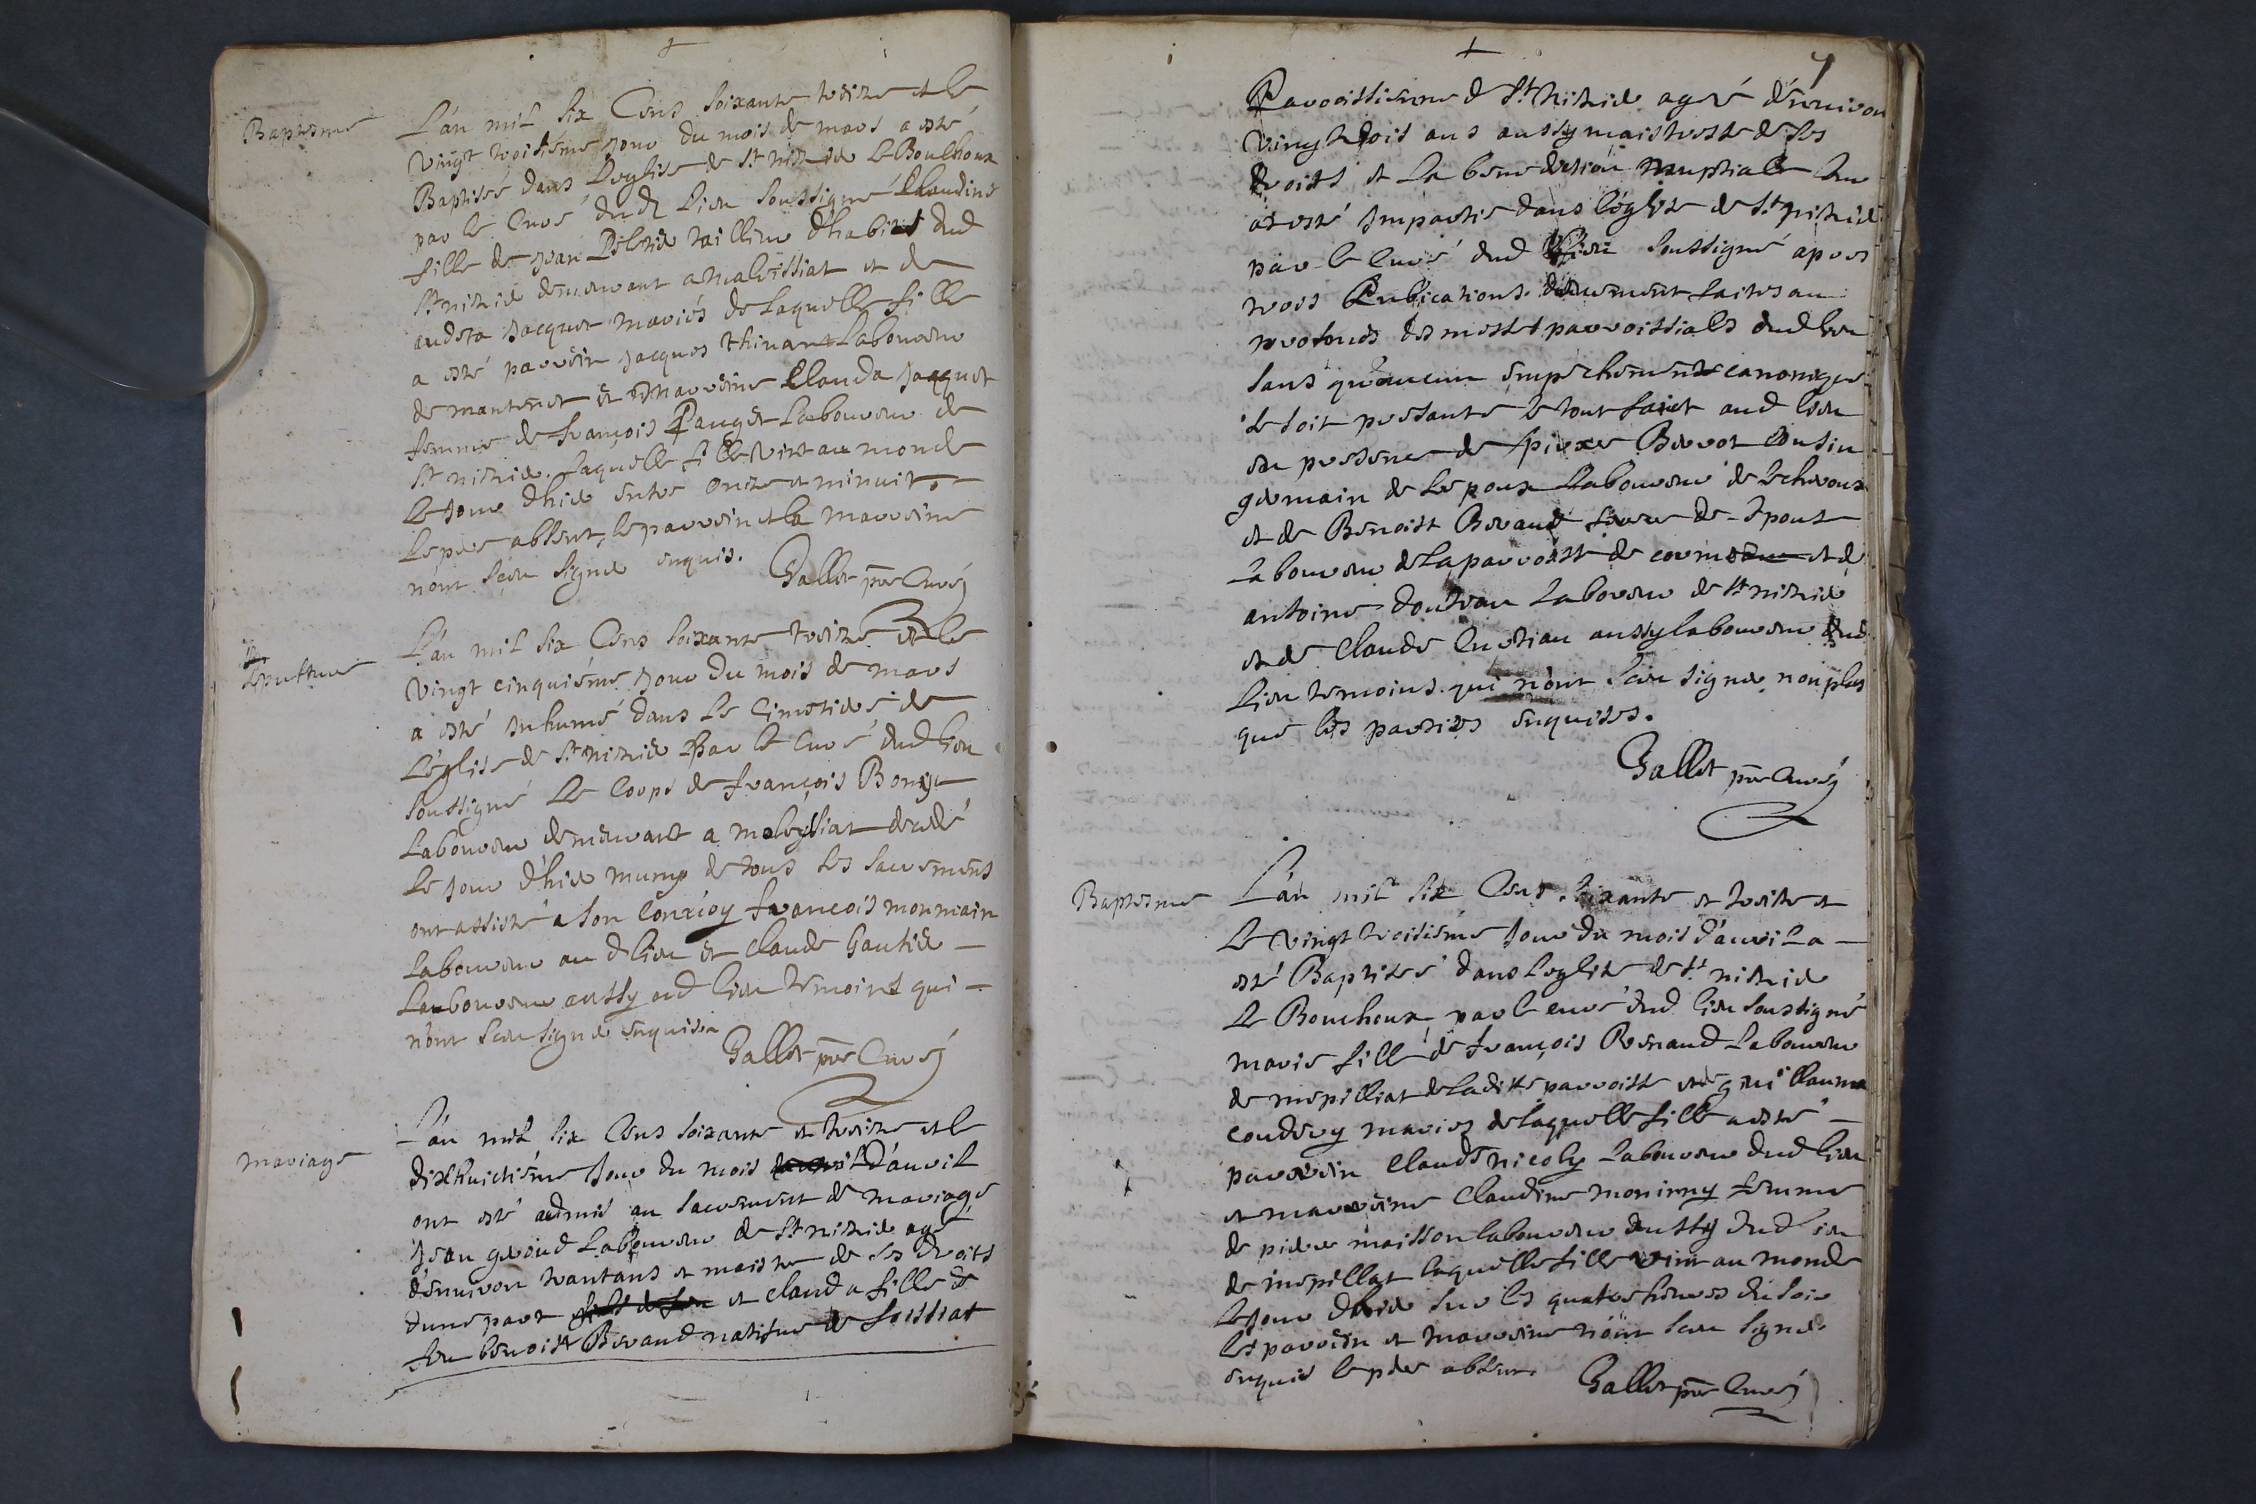 Baptesme
L'an mil six Cens soixante treize et le
vingt troisiéme jour du mois de mars a esté
Baptisée dans l'eglise de St nizier le Bouchoux
par le Curé dud Lieu soussigné Claudine
fille de jean tailleur d'habits dud
St nizier demeurant a Maleissiat et de
jacquet mariés de laquelle fille
a esté parrein jacques Laboureur
de mantenet et marreine Clauda jacquet
femme de françois Pauget Laboureur de
St nizier. laquelle fille vint au monde
Le jour d'hier entre onze et minuit.
Le pere absent, le parrein et la marreine
n'ont sceu signer enquis.
Gallet pbre Curé
Sepulture
L'an mil six Cens soixante treize et le
vingt cinquiéme jour du mois de mars
a esté inhumé dans le Cimetiere de
L'eglise de St nizier Par le Curé dud lieu
soussigné Le Corps de françois Bony
Laboureur demeurant a maleyssiat decedé
Le jour d'hier muny de tous les sacremens
ont assisté a son convoy françois monmain
Laboureur au d lieu et Claude Gautier
Laboureur aussy aud lieu témoins qui
n'ont sceu signer enquis.
Gallet pbre Curé
Mariage
L'an mil six Cens soixante et treize et le
dixhuictiéme jour du mois d'auril
ont esté admis au sacrement de mariage
Jean Laboureur de St nizier agé
d'enuiron trantans et maistre de ses droits
d'une part et clauda fille de
feu benoist Beraud natifue de foissiat
7
Parroissienne de St nizier agée d'enuiron
vingt trois ans aussy maistresse de ses
droits et La benediction nuptiale leur
a esté impartie dans l'église de St nizier
par le Curé dud Lieu soussigné apres
trois Publications deuement faites au
prosnes des messes parroissiales dud lieu
sans qu'aucun empechement canonique
se soit presenté le tout faict aud lieu
en presence de pierre Beraud Cousin
germain de l'epoux Laboureur de Lecheroux
et de Benoist Beraud frere de l'epouse
Laboureur de la parroisse de et de
antoine Laboureur de St nizier
et de Claude aussy laboureur dud
Lieu temoins qui n'ont sceu signer non plus
que les parties enquises.
Gallet pbre Curé
Baptesme
L'an mil six Cens soixante et treize et
Le vingt troisiéme jour du mois d'auril a
esté Baptisée dans l'eglise de St nizier
Le Bouchoux par le curé dud lieu soussigné
marie fille de françois Renaud Laboureur
de mepilliat de laditte parroisse et de guillauma
coudery mariez de laquelle fille a esté
parrein Claude nicoly Laboureur dud lieu
et marreine Claudine moninny femme
de pierre maisson laboureur aussy dud lieu
de mepillat laquelle fille vint au monde
Le jour d'hier sur les quatre heures du soir
Les parrein et marreine n'ont sceu signer
enquis le pere absent.
Gallet pbre Curé